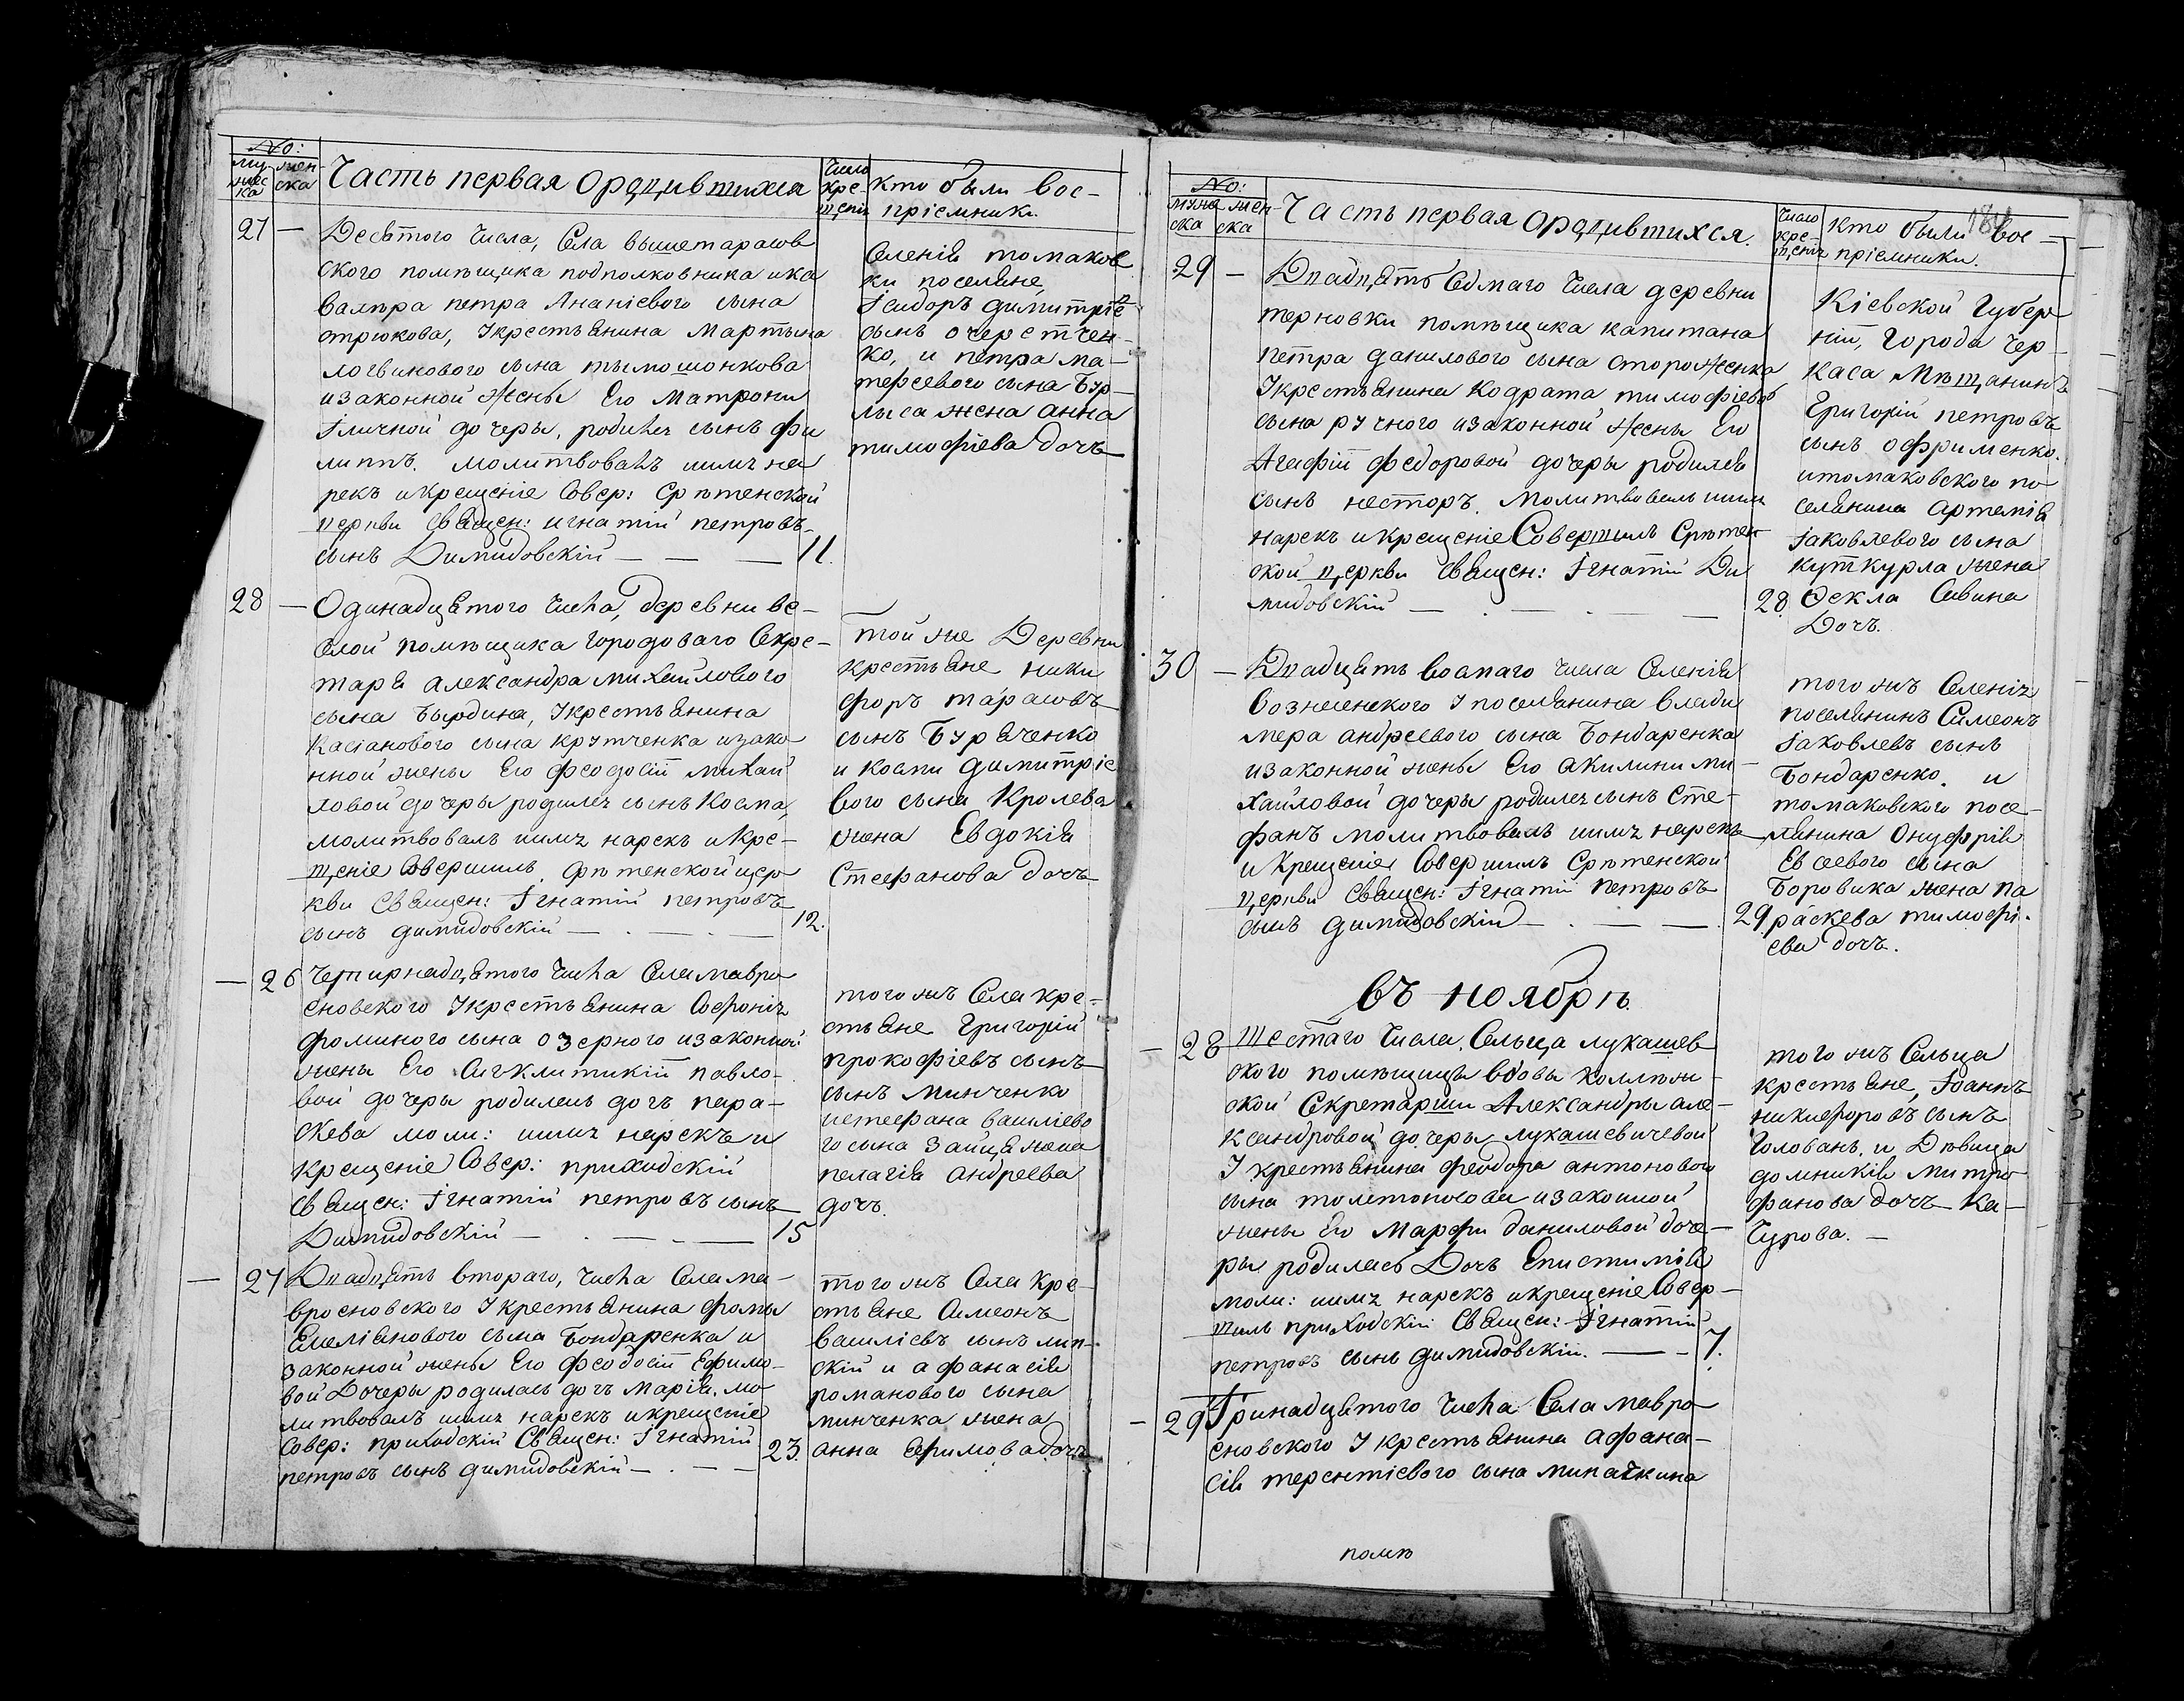 No:
муж
жес
ка
жен
ска
Часть первая ородившихся
Число
кре-
щенія
кто были вос-
пріемники.
27 —
Десятого числа, села вышетарасов
ского помѣщика подполковника и ка
валера петра Ананіевого сына
стрюкова, У крестьянина Мартына
логвинового сына тымошонкова
и законной жены Его Матроны
Іличной дочеры, родился сынъ фи
липпъ. молитвовалъ имя на
рекъ и крещеніе Совер: Срѣтенской
церкви Священ: игнатій петровъ
сынъ Димидовскій — — — 11.
Селенія томаков
ки поселяне,
Ісидоръ димитріе
сынъ очеретчен-
ко, и петра ма-
тереевого сына Бур-
лыса жена анна
тимофѣева дочь
28 —
Одинадцятого числа, деревни ве-
селой помѣщика городоваго Секре-
таря александра михайлового
сына Бырдина, У крестьянина
касіанового сына крутченка и зако-
нной жены Его феодосіи михай
ловой дочеры родился сынъ Косма,
молитвовалъ имя нарекъ и Кре-
щеніе Совершилъ Срѣтенской цер
кви Священ: Ігнатій петровъ
сынъ димидовскій — — — 12.
той же Деревни
крестьяне ники
форъ тарасовъ
сынъ Буряченко
и косми димитріе
вого сына Кролева
жена Евдокія
Стефанова дочь
— 26
Четирнадцятого числа Села маври
еновского У крестьянина Софронія
фоминого сына озерного и законной
жены Его Сигклитикіи павло-
вой дочеры родилась дочь пара-
скева моли: имя нарекъ и
крещеніе Совер: приходскій
Священ: Ігнатій петровъ сынъ
Димидовскій — — — 15
того жъ Села кре-
стьяне Григорій
прокофіевъ сынъ
сынъ Минченко
и стефана василіево
го сына Зайця жена
пелагія андреева
дочь.
— 27
Двадцять втораго, числа Села ма-
вриеновского У крестьянина фомы
Емеліянового сына Бондаренка и
законной жены Его феодосіи Ефимо-
вой Дочеры родилась дочь марія, мо
литвовалъ имя нарекъ и крещеніе
Совер: приходскій Священ: Ігнатій
петровъ сынъ димидовскій — — — 23.
того жъ Села кре-
стьяне Симеонъ
василіевъ сынъ лип-
скій и афанасія
романового сына
минченка жена
анна Ефимова дочь
No:
мужа
ска
жен
ска
Часть первая ородившихся.
Число
кре-
щенія
кто были вос-
пріемники.
29 —
Двадцять Седмаго числа деревни
терновки помѣщика капитана
петра данилового сына стороженка
У крестьянина кодрата тимофіевого
сына ручного и законной жены Его
Агафіи федоровой дочеры родился
сынъ несторъ. молитвовалъ имя
нарекъ и крещеніе Совершилъ Срѣтен
ской церкви Священ: Ігнатій Ди
мидовскій — — — 28.
Кіевской Губер
ніи, Города чер-
каса Мѣщанинъ
Григорій петровъ
сынъ офрименко.
и томаковского по
селянина артемія
Іаковлевого сына
куткурла жена
Фекла Савина
Дочь.
30 —
Двадцять восмаго числа Селенія
вознесенского У поселянина влади
мера андреевого сына Бондаренка
и законной жены Его акилини ми-
хайловой дочеры родился сынъ Сте-
фанъ молитвовалъ имя нарекъ
и Крещеніе Совершилъ Срѣтенской
церкви Священ: Ігнатій петровъ
сынъ димидовскій — — — 29.
того жъ Селенія
поселянинъ Симеонъ
Іаковлевъ сынъ
Бондаренко. и
томаковского посе-
лянина Онуфрія
Евсеевого сына
Боровика жена па
раскева тимофі-
ева дочь.
въ ноябрѣ.
— 28
Шестаго числа, Сельца лукашев
ского помѣщицы вдовы коллеж-
ской Секретарши Александры але-
ксандровой дочеры лукашевичевой
У крестьянина феодора антоновои
сына толстоносова и законной
жены Его Марфи даниловой доче-
ры родилась Дочь Епистимія
моли: имя нарекъ и крещеніе Совер-
шилъ приходскій Священ: Ігнатій
петровъ сынъ димидовскій. — — 7.
того жъ Сельца
крестьяне, Іоаннъ
никифоровъ сынъ
Головань, и Дѣвица
домникія митро
фанова дочь Ка-
чурова. —
— 29
Тринадцятого числа Села мавро-
еновского У крестьянина афана-
сія терентіевого сына
помѣ